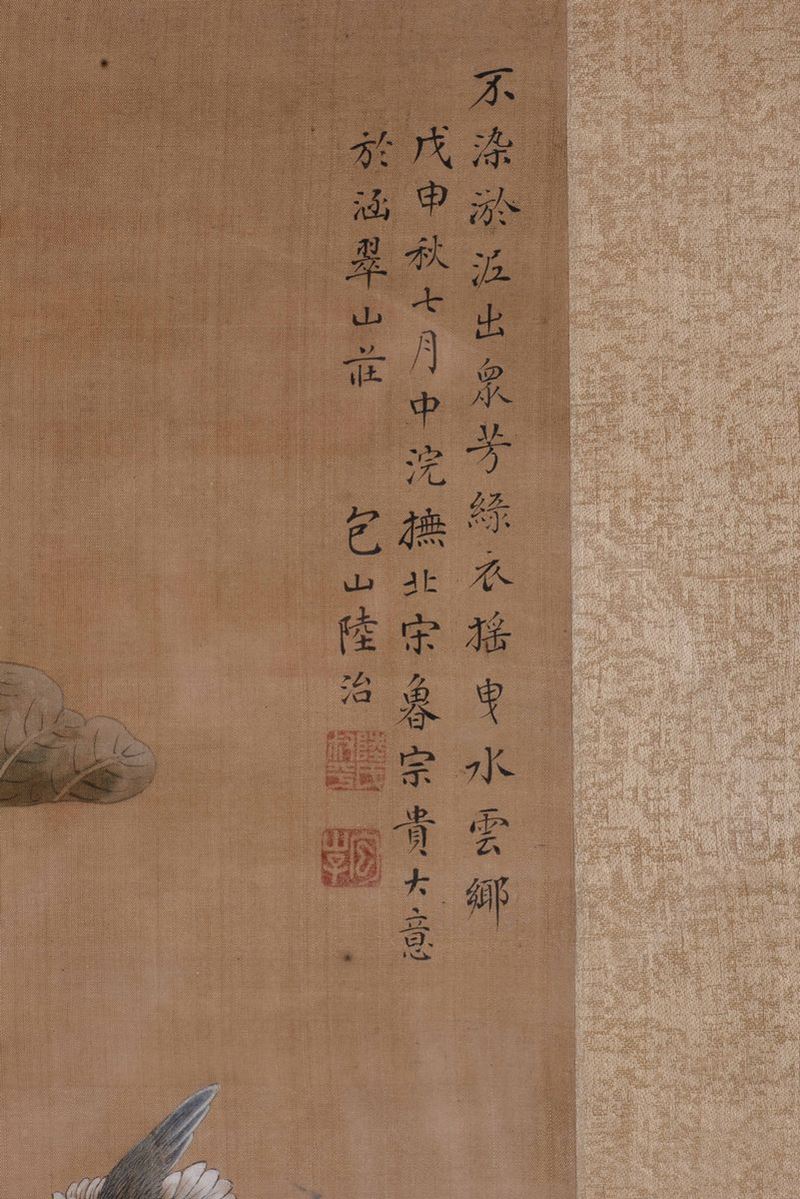 不染淤泥出衆芳綠衣搖曳水雲鄉
戊申秋七月中浣撫北宋魯宗貴大意
於涵翠山莊
包山陸治
包山